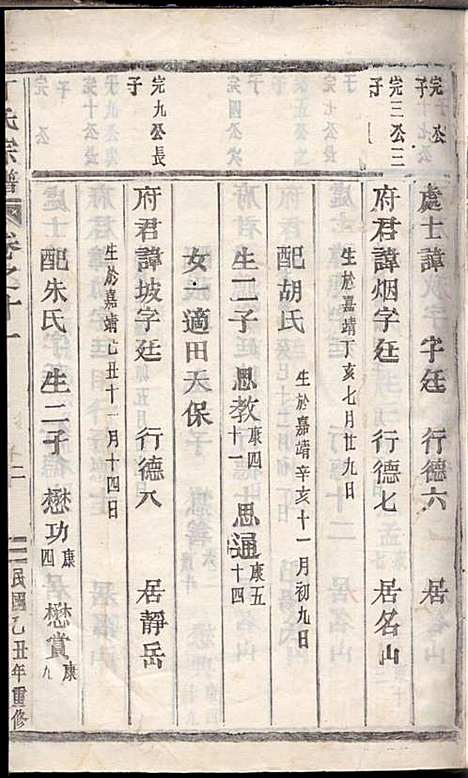 完 公
子
處士諱 字廷 行德六 居
完三公三
子
府君諱烟字廷 行德七 居名山
生於嘉靖丁亥七月廿九日
配胡氏
生於嘉靖辛亥十一月初九日
生二子 思教康四十一 思通康五十四
女一適田天保
完九公長
子
府君諱坡字廷 行德八 居靜岳
生於嘉靖乙丑十一月十四日
配朱氏 生二子 懋功康四 懋賞康九
丁氏宗譜 卷之十一 二 民國乙丑年重修